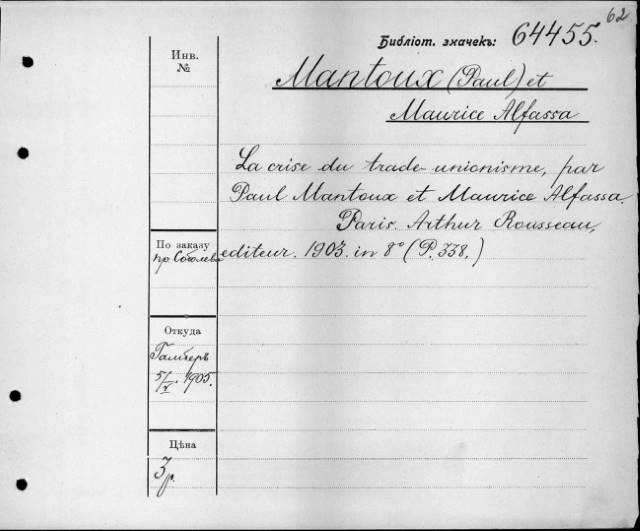 62
Библіот. значекъ: 64455.
Инв.
№
Mantoux (Paul) et
Maurice Alfassa
La crise du trade-unionisme, par
Paul Mantoux et Maurice Alfassa.
Paris. Arthur Rousseau,
editeur. 1903. in 8° (P. 338.)
По заказу
пр. Соболева
Откуда
5/X. 1905.
Цѣна
3 р.